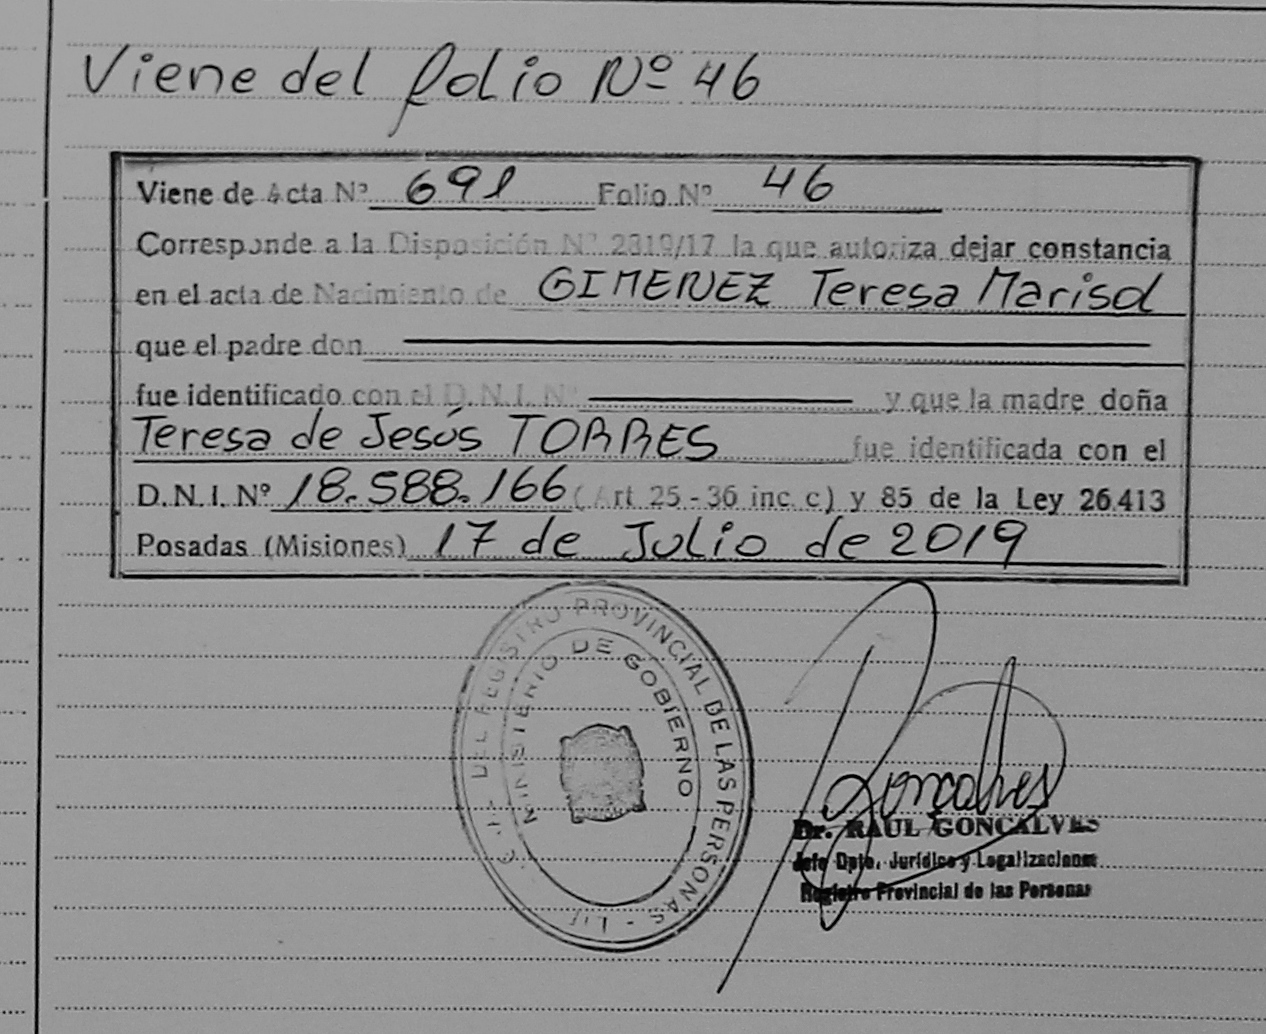 Viene del folio Nº 46
Viene de Acta Nº 691 Folio Nº 46
Corresponde a la Disposición Nº 2319/17 la que autoriza dejar constancia
en el acta de Nacimiento de GIMENEZ Teresa Marisol
que el padre don
fue identificado con el D.N.I. Nº y que la madre doña
Teresa de Jesús TORRES fue identificada con el
D.N.I. Nº 18.588.166 (Art 25-36 inc. c) y 85 de la Ley 26.413
Posadas (Misiones) 17 de Julio de 2019
DEL REGISTRO PROVINCIAL DE LAS PERSONAS
MINISTERIO DE GOBIERNO
Gonçalves
Dr. RAUL GONCALVES
Jefe Dpto. Jurídico y Legalizaciones
Registro Provincial de las Personas